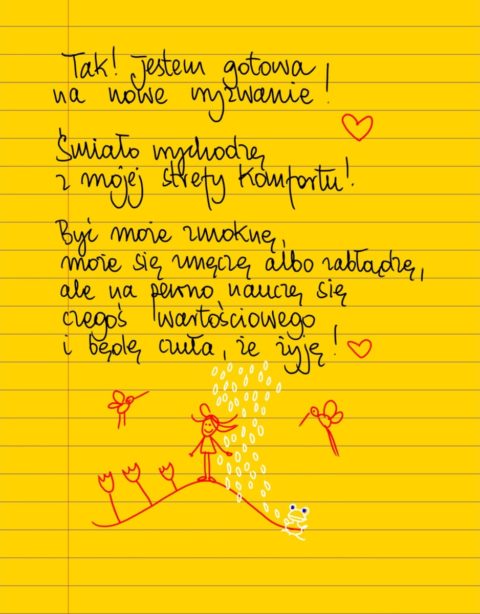 Tak! jestem gotowa
na nowe wyzwanie!
Śmiało wychodzę
z mojej strefy komfortu!
Być może zmoknę,
może się zmęczę albo zabłądzę,
ale na pewno nauczę się
czegoś wartościowego
i będę czuła, że żyję!